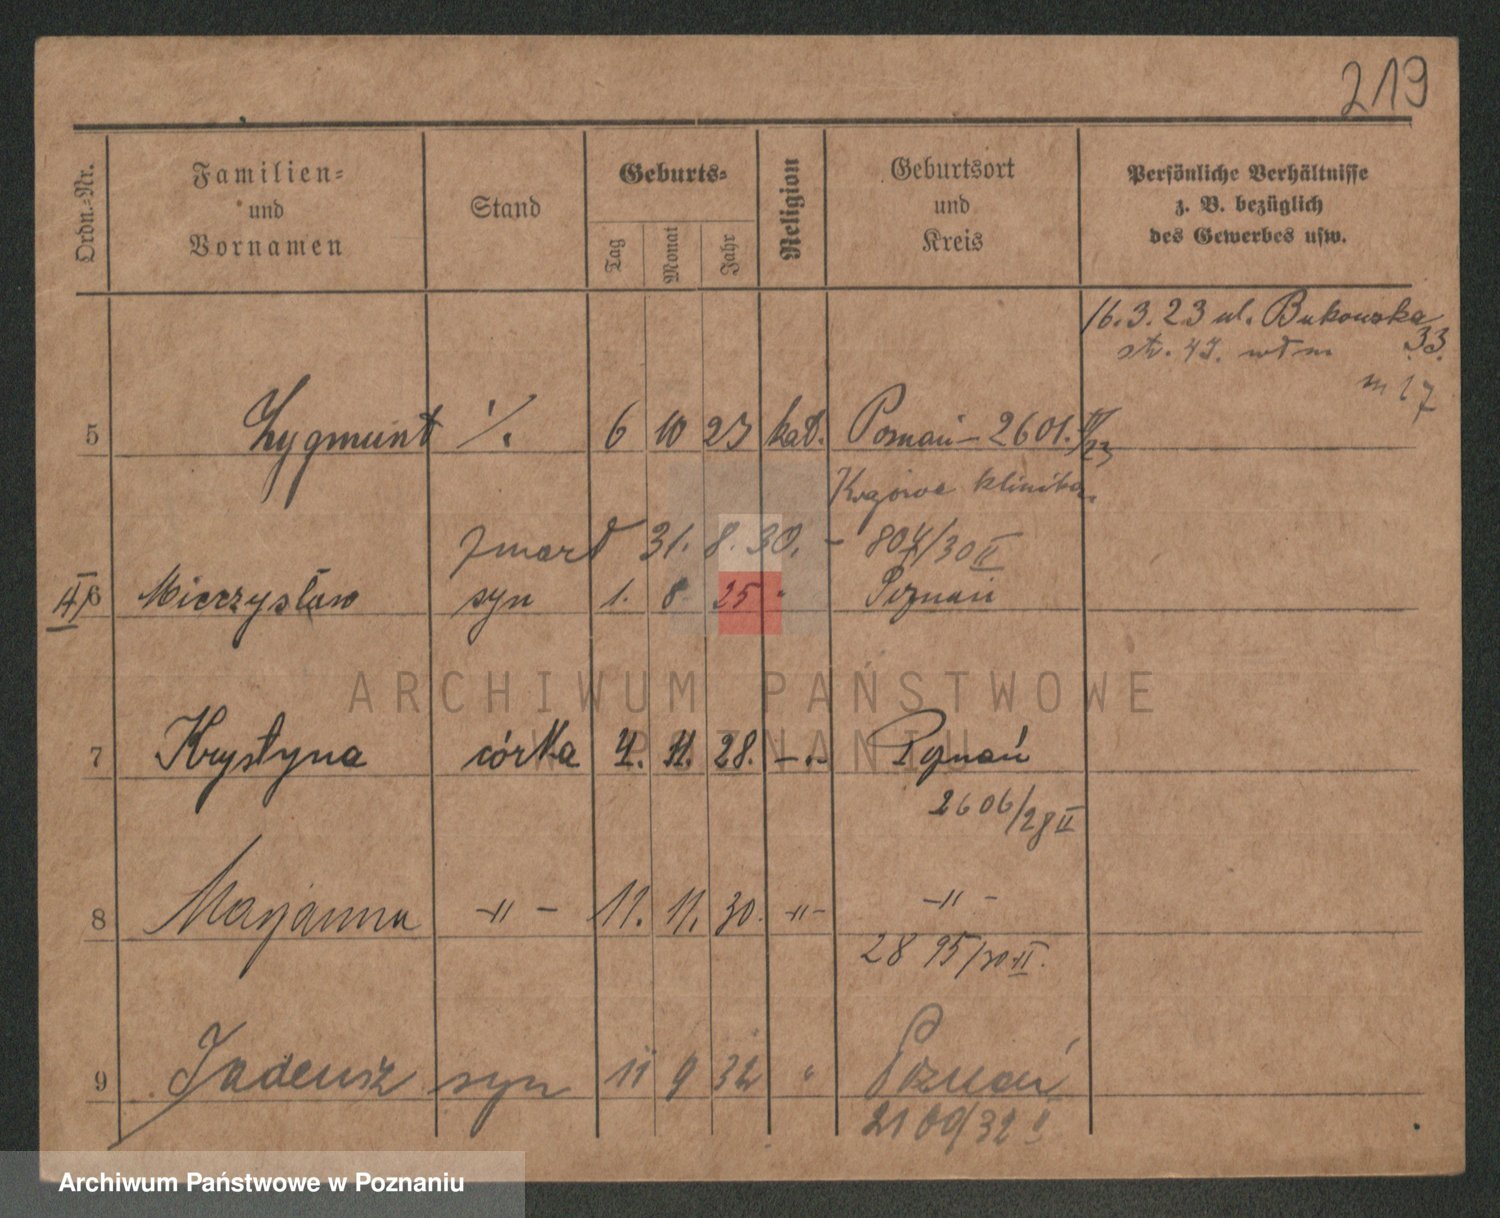 219
Ordn.-Nr.
Familien-
und
Vornamen
Stand
Geburts-
Tag
Monat
Jahr
Religion
Geburtsort
und
Kreis
Persönliche Verhältnisse
z. B. bezüglich
des Gewerbes usw.
16. 3. 23 ul. Bukowska
33.
str. 47.
m 17
5 Zygmunt ·/. 6 10 23 kat. Poznań - 2601. II/23
Krajowa klinika
zmarł 31. 8. 30. - 804/30 II
6 Mieczysław syn 1. 8 25 " Poznań
7 Krystyna córka 4. 11. 28. -"- Poznań
2606/28 II
8 Marjanna -"- 11. 11. 30. -"- -"-
2895/30 II.
9 Tadeusz syn 11 9 32 " Poznań
2100/32 II
ARCHIWUM PAŃSTWOWE
W POZNANIU
Archiwum Państwowe w Poznaniu